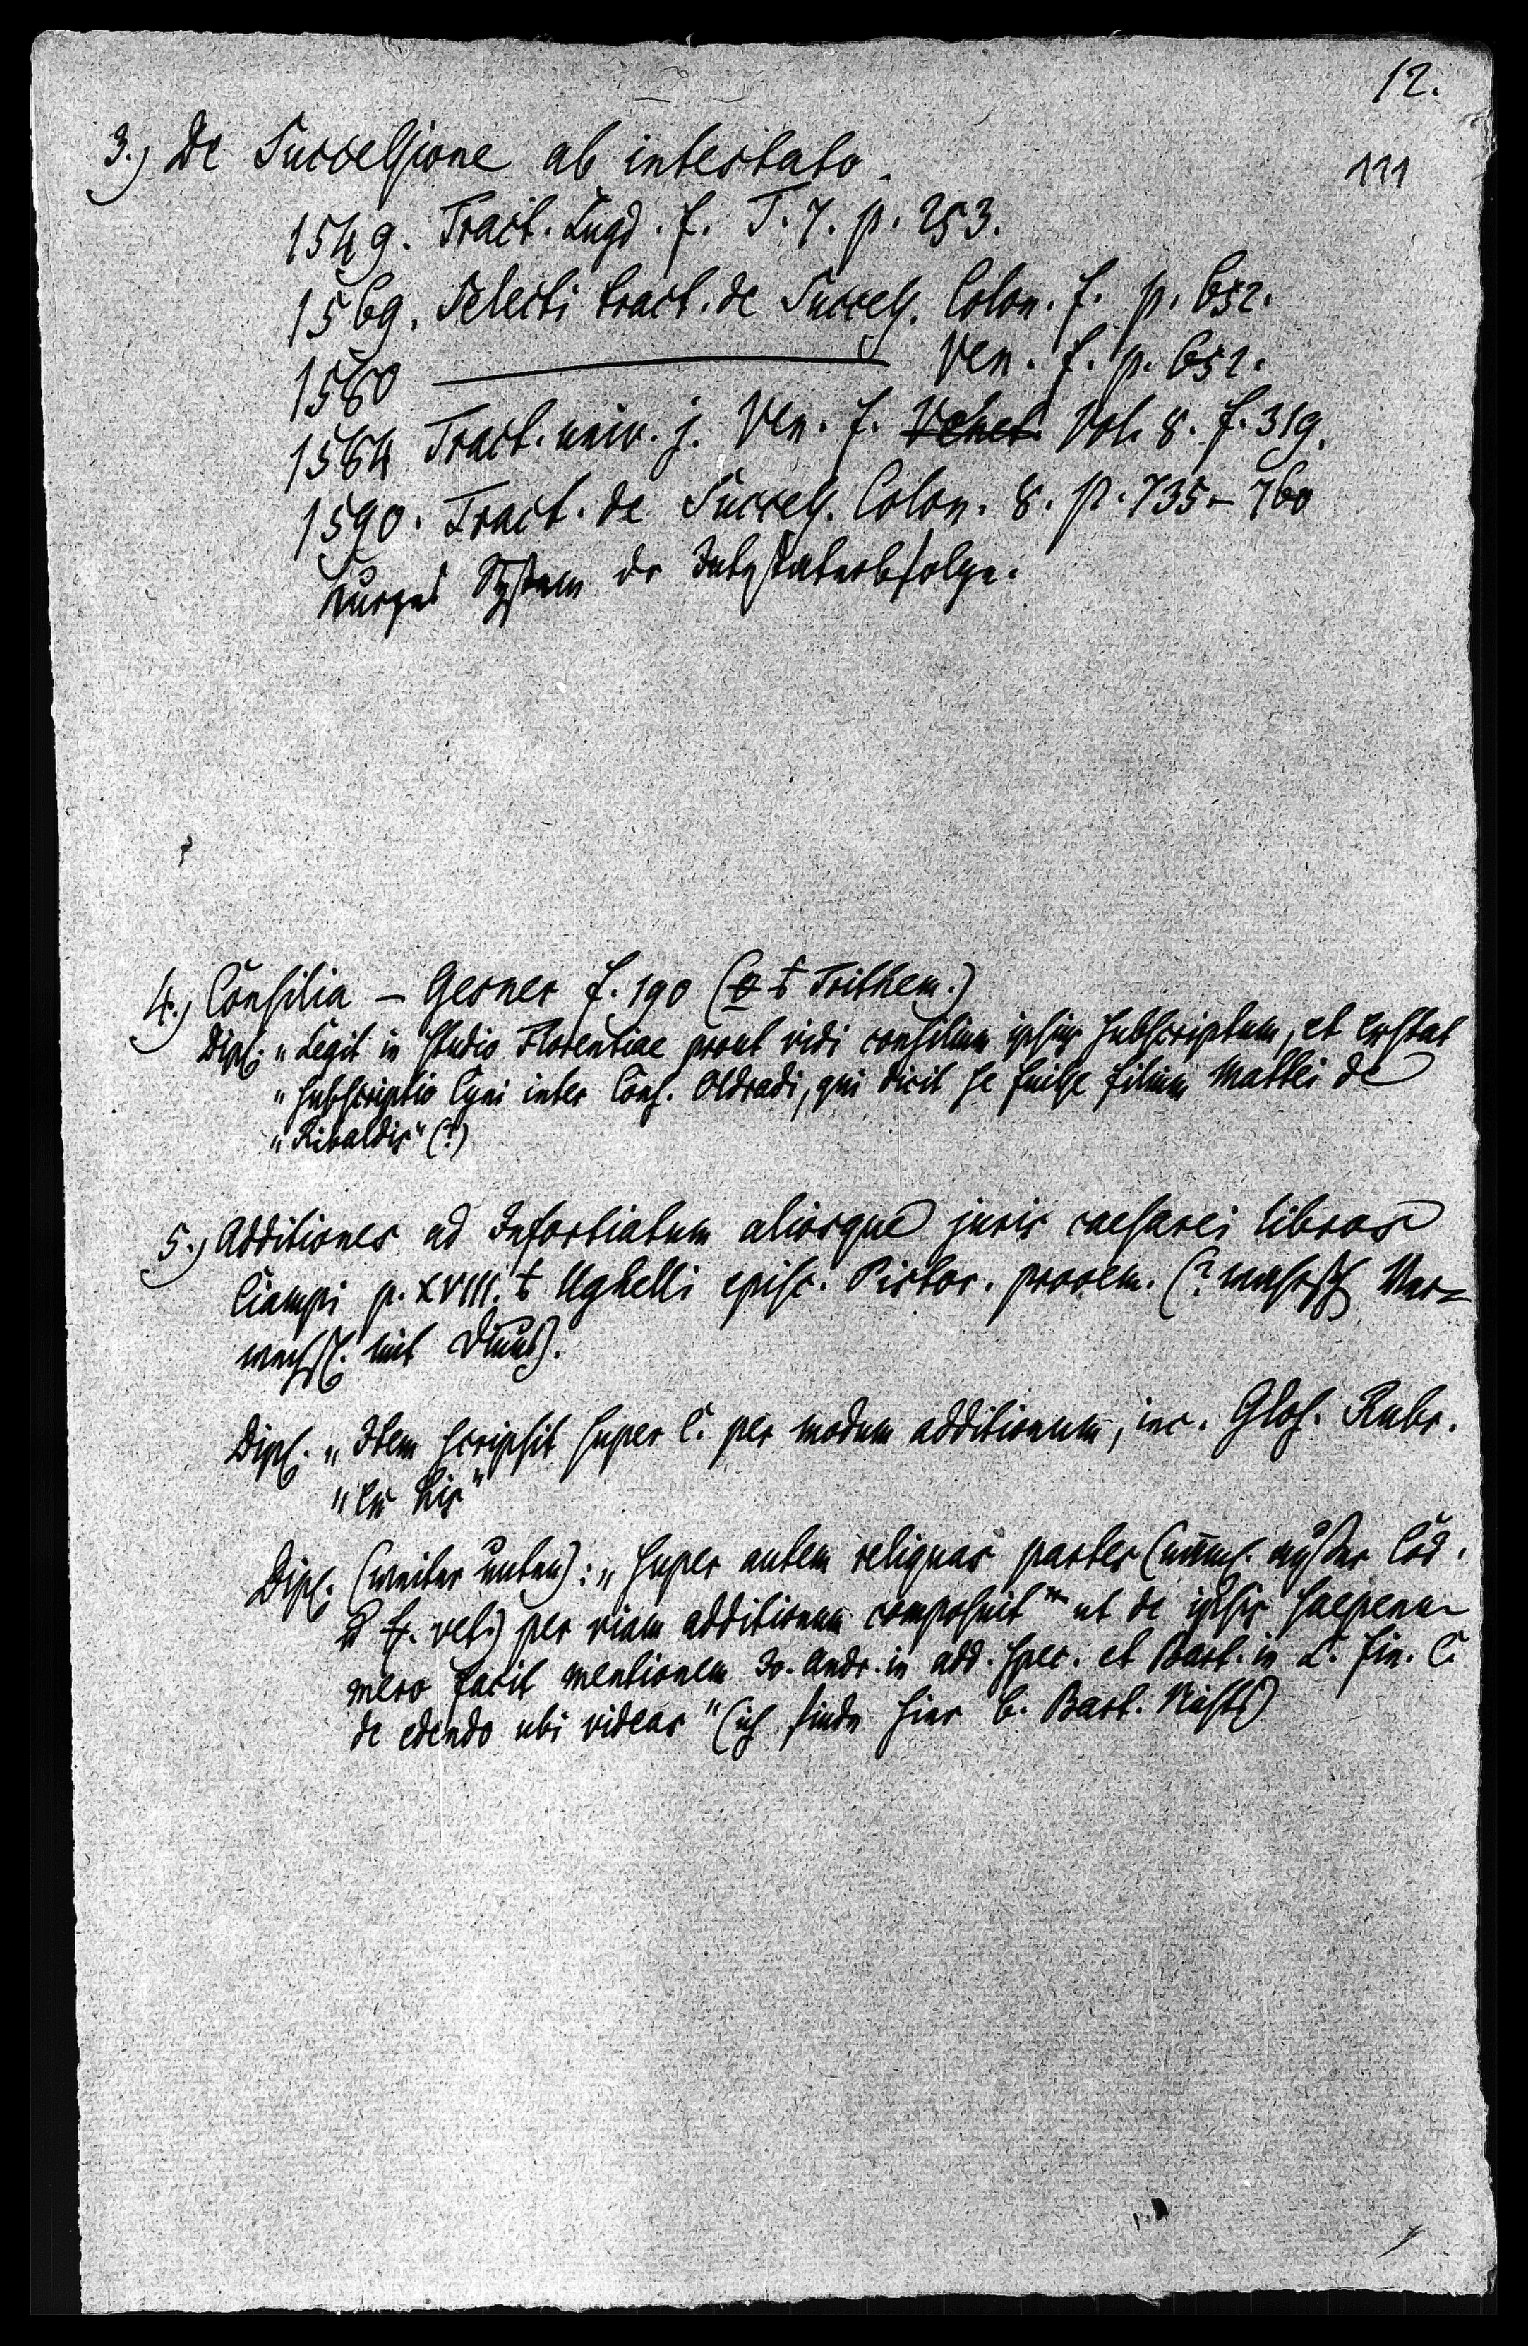 12.
111
3.) De Successione ab intestato.
1549. Tract. Lugd. f. T. 7. p. 253.
1569. Selecti tract. de Success. Colon. f. p. 652.
1580 ——— Ven. f. p. 652.
1584 Tract. univ. j. Ven. f. Venet. Vol. 8. f. 319.
1590. Tract. de Success. Colon. 8. p. 735–760
Kurzes System der Intestaterbfolge.
4.) Consilia – Gesner f. 190 (Trithem.)
Dipl. „Legit in studio Florentiae prout vidi consilium ipsius subscriptum, et exstat
„subscriptio Cyni inter Cons. Oldradi, qui dicit se fuisse filium Mattei de
„Rivaldis“ (?)
5.) Additiones ad Infortiatum aliosque juris caesarei libros
Ciampi p. XVIII. † Ughelli episc. Pistor. prooem. (? Ver=
wechsl. mit Dinus).
Dipl. „Item scripsit super C. per modum additionum, inc. Glos. Rubr.
„ex his“
Dipl. (weiter unten): „super autem reliquas partes (außer Cod.
vet.) per viam additionum composuit ut de ipsis saepenu-
mero facit mentionem Jo. Andr. in add. Spec. et Bart. in L. fin. C.
de edendo ubi videas“ (ich finde hier b. Bart. Nichts)